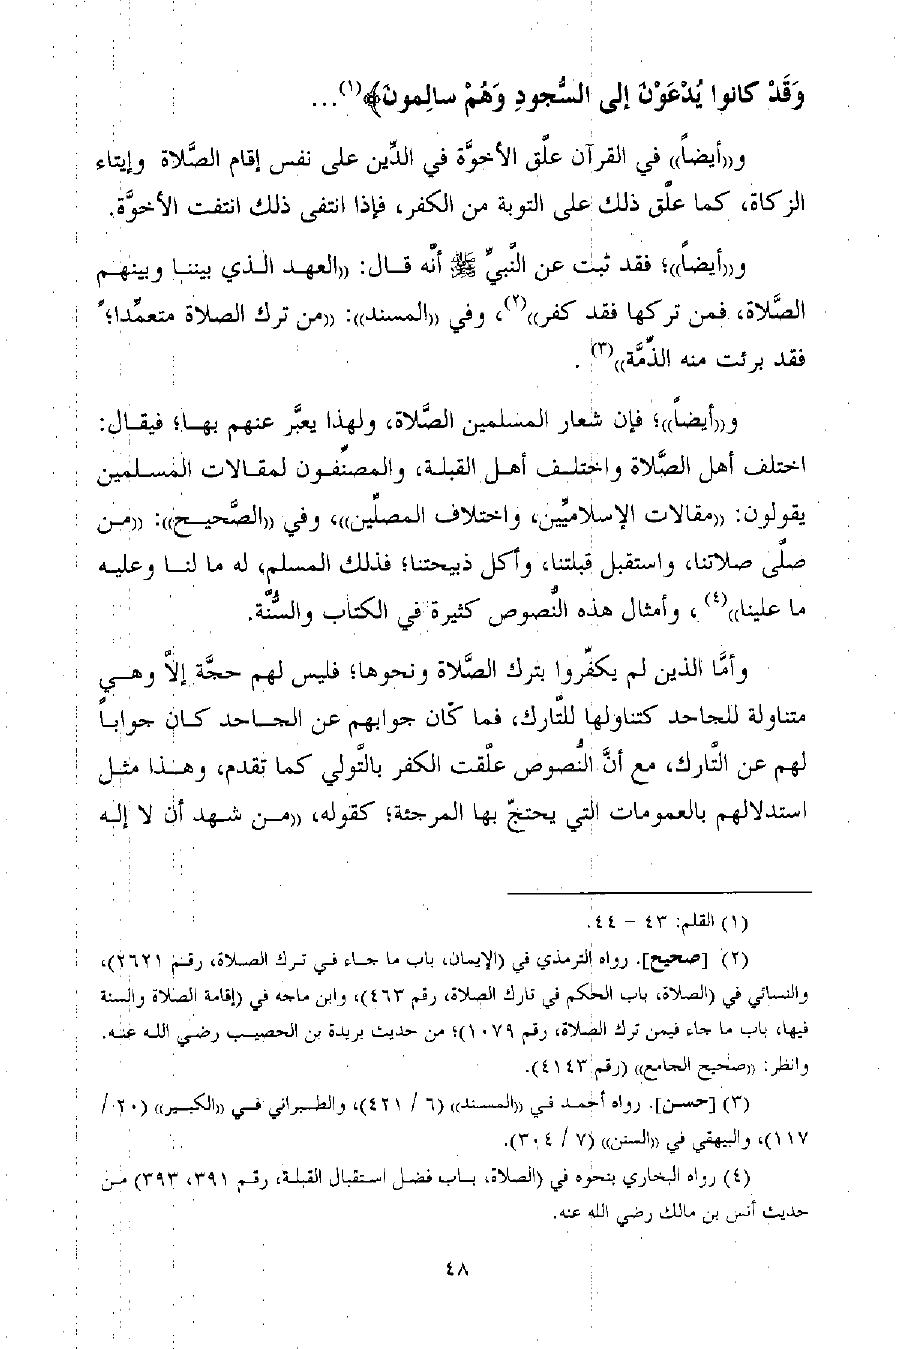 وَقَدْ كانوا يُدْعَوْنَ إلى السُّجودِ وَهُمْ سالِمونَ﴾(١)...
و((أيضاً)) في القرآن علَّق الأخوَّة في الدِّين على نفس إقام الصَّلاة وإيتاء
الزكاة، كما علَّق ذلك على التوبة من الكفر، فإذا انتفى ذلك انتفت الأخوَّة.
و((أيضاً))؛ فقد ثبت عن النَّبيِّ ﷺ أنَّه قال: ((العهد الذي بيننا وبينهم
الصَّلاة، فمن تركها فقد كفر))(٢)، وفي ((المسند)): ((من ترك الصلاة متعمِّدا؛ً
فقد برئت منه الذِّمَّة))(٣).
و((أيضاً))؛ فإن شعار المسلمين الصَّلاة، ولهذا يعبَّر عنهم بها؛ فيقال:
اختلف أهل الصَّلاة واختلف أهل القبلة، والمصنِّفون لمقالات المسلمين
يقولون: ((مقالات الإسلاميِّين، واختلاف المصلِّين))، وفي ((الصَّحيح)): ((من
صلَّى صلاتنا، واستقبل قبلتنا، وأكل ذبيحتنا؛ فذلك المسلم، له ما لنا وعليه
ما علينا))(٤)، وأمثال هذه النُّصوص كثيرة في الكتاب والسُّنَّة.
وأمَّا الذين لم يكفِّروا بترك الصَّلاة ونحوها؛ فليس لهم حجَّة إلاَّ وهي
متناولة للجاحد كتناولها للتَّارك، فما كان جوابهم عن الجاحد كان جواباً
لهم عن التَّارك، مع أنَّ النُّصوص علَّقت الكفر بالتَّولي كما تقدم، وهذا مثل
استدلالهم بالعمومات التي يحتجّ بها المرجئة؛ كقوله، ((من شهد أن لا إله
(١) القلم: ٤٣ – ٤٤.
(٢) [صحيح]. رواه الترمذي في (الإيمان، باب ما جاء في ترك الصلاة، رقم ٢٦٢١)،
والنسائي في (الصلاة، باب الحكم في تارك الصلاة، رقم ٤٦٣)، وابن ماجه في (إقامة الصلاة والسنة
فيها، باب ما جاء فيمن ترك الصلاة، رقم ١٠٧٩)؛ من حديث بريدة بن الحصيب رضي الله عنه.
وانظر: ((صحيح الجامع)) (رقم ٤١٤٣).
(٣) [حسن]. رواه أحمد في ((المسند)) (٦ / ٤٢١)، والطبراني في ((الكبير)) (٢٠ /
١١٧)، والبيهقي في ((السنن)) (٧ / ٣٠٤).
(٤) رواه البخاري بنحوه في (الصلاة، باب فضل استقبال القبلة، رقم ٣٩١، ٣٩٣) من
حديث أنس بن مالك رضي الله عنه.
٤٨